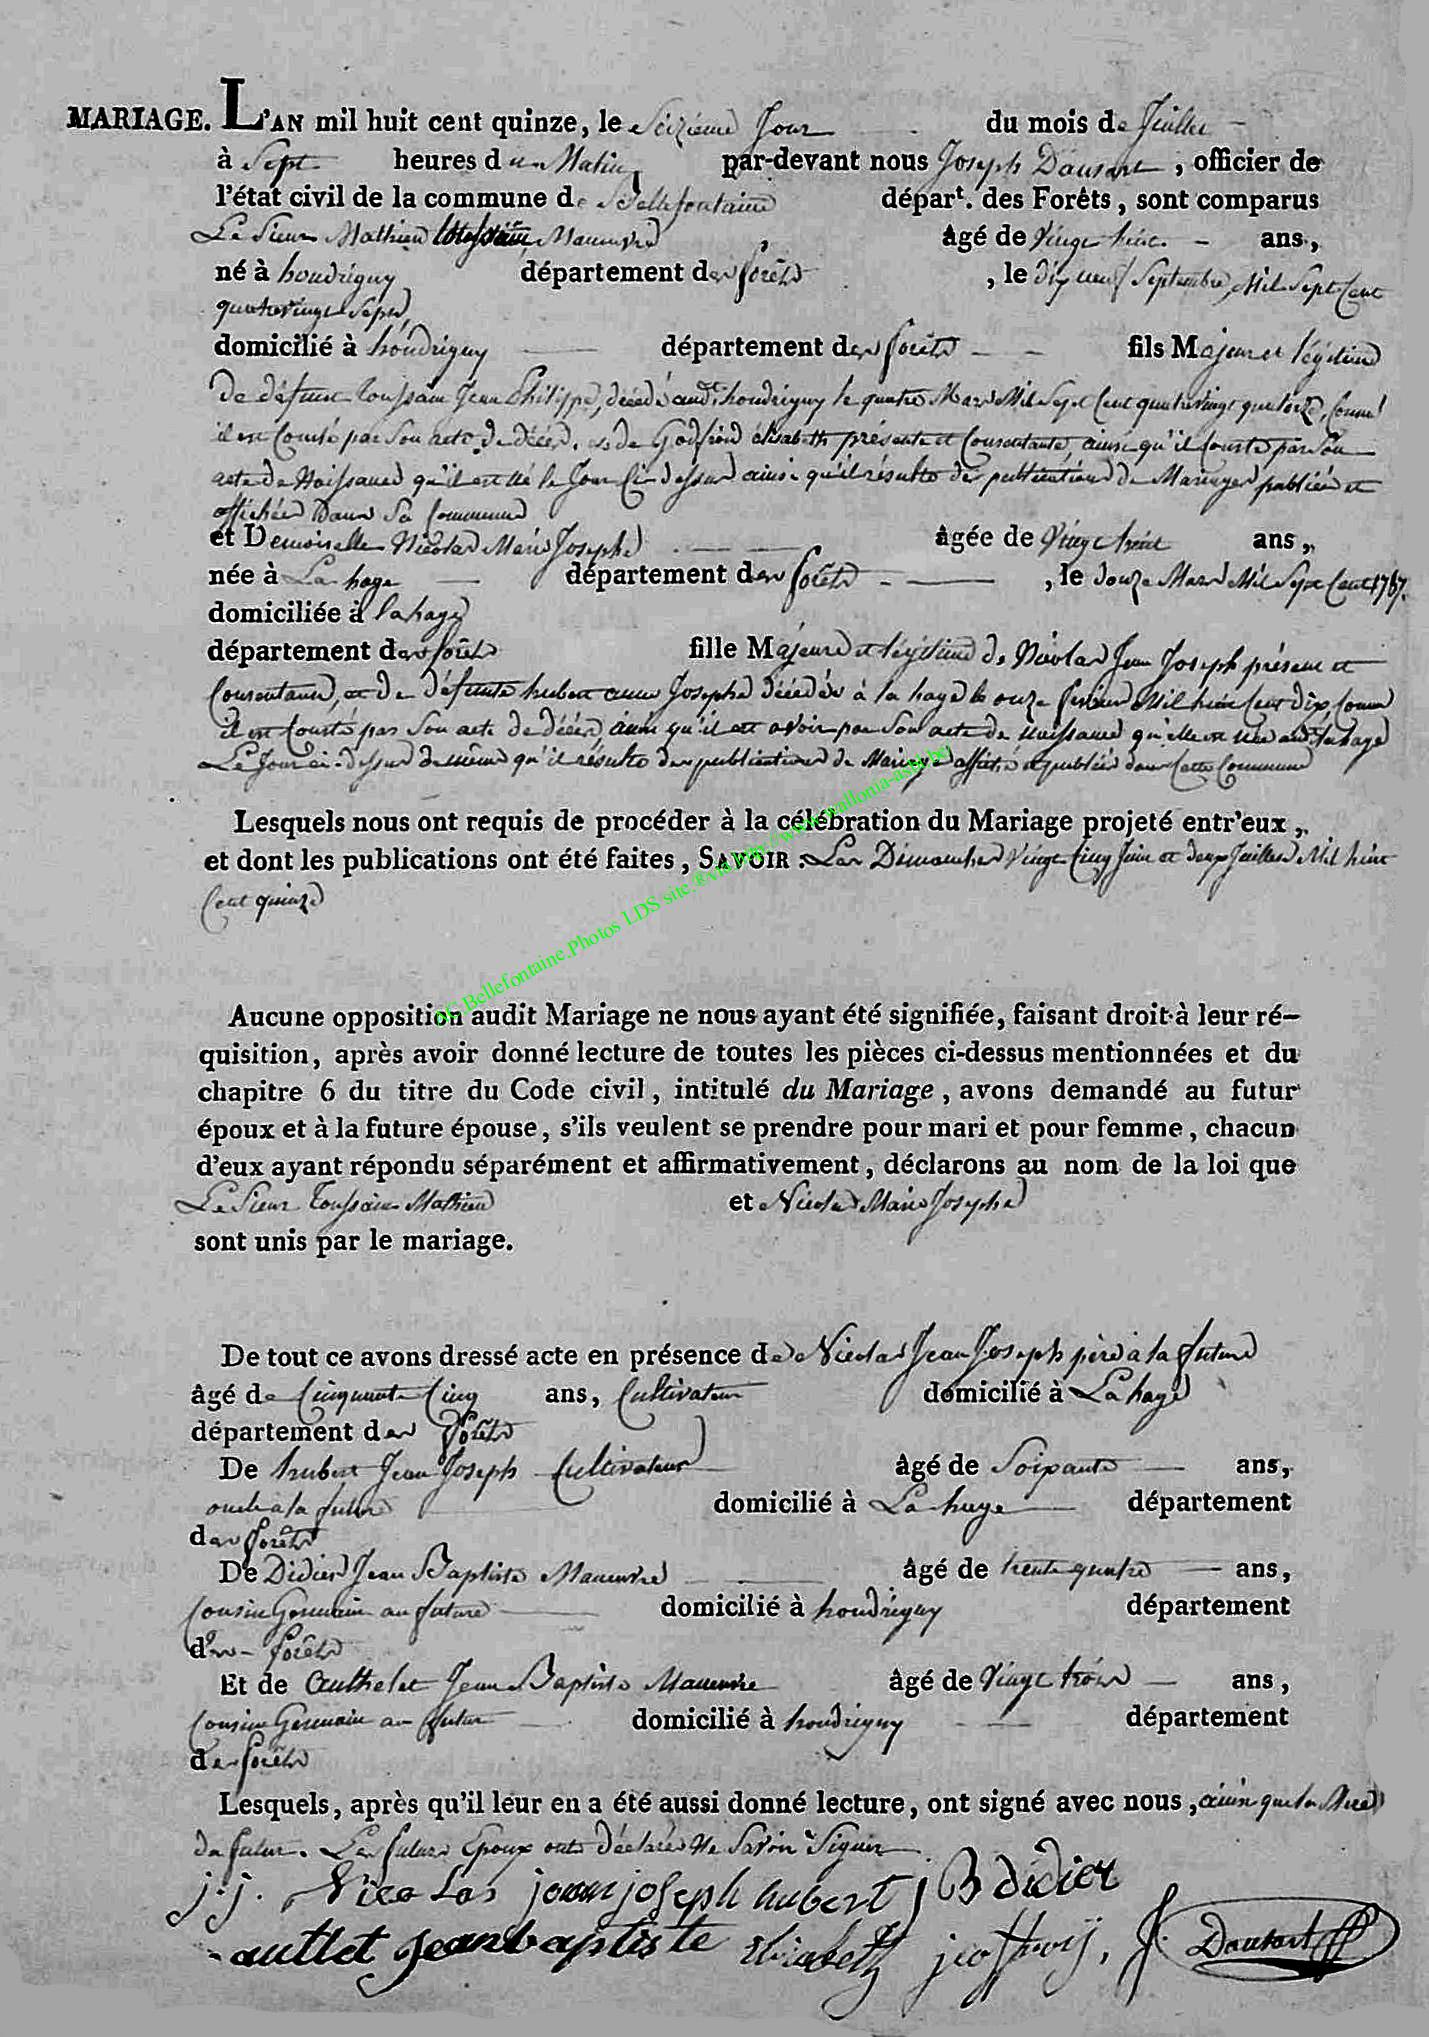 MARIAGE. L'AN mil huit cent quinze, le Seizieme Jour du mois de Juillet
à Sept heures du Matin, par-devant nous Joseph Dausart, officier de
l'état civil de la commune de Bellefontaine départ. des Forêts, sont comparus
Le Sieur Mathieu Toussaint Manœuvre, âgé de Vingt huit ans,
né à houdrigny département des forêts, le dix neuf Septembre Mil Sept Cent
quatrevingt Sept
domicilié à houdrigny département des forêts fils Majeur et légitime
de défunt Toussain Jean Philippe, décédé audt. houdrigny le quatre Mars Mil Sept Cent quatrevingt quatorze, Comme
il est Consté par Son acte de décès. et de Godfroid élisabeth présente et Consentante, ainsi qu'il Conste par Son
acte de Naissance qu'il est né le Jour Ci dessus ainsi qu'il résulte des publications de Mariages publiés et
affichés dans Sa Commune
et Demoiselle Nicolas Marie Josephe âgée de Vingt huit ans,
née à La hage département des forêts, le douze Mars Mil Sept Cent 1787.
domiciliée à la hage
département des forêts fille Majeure et légitime de Nicolas Jean Joseph présent et
Consentant, et de défunte hubert anne Josephe décédée à la hage le onze fevrier Mil huit Cent dix Comme
il est Consté par Son acte de décès, ainsi qu'il est avoir par Son acte de naissance qu'elle est née audt. la hage
Le Jour ci-dessus de même qu'il résulte des publications de Mariage affiché et publiés dans Cette Commune
Lesquels nous ont requis de procéder à la célébration du Mariage projeté entr'eux,
et dont les publications ont été faites, SAVOIR : Les Dimanches Vingt Cinq Juin et deux Juillet Mil huit
Cent quinze
AC.Bellefontaine.Photos LDS site ®via http://www.wallonia-asbl.be/
Aucune opposition audit Mariage ne nous ayant été signifiée, faisant droit à leur ré-
quisition, après avoir donné lecture de toutes les pièces ci-dessus mentionnées et du
chapitre 6 du titre du Code civil, intitulé du Mariage, avons demandé au futur
époux et à la future épouse, s'ils veulent se prendre pour mari et pour femme, chacun
d'eux ayant répondu séparément et affirmativement, déclarons au nom de la loi que
Le Sieur Toussain Mathieu et Nicolas Marie Josephe
sont unis par le mariage.
De tout ce avons dressé acte en présence de Nicolas Jean Joseph père à la future
âgé de Cinquante Cinq ans, Cultivateur domicilié à La hage
département des forêts
De hubert Jean Joseph Cultivateur âgé de Soixante ans,
oncle a la future domicilié à La hage département
des forêts
De Didier Jean Baptiste Manœuvre âgé de trente quatre ans,
Cousin Germain au future domicilié à houdrigny département
des forêts
Et de Authelet Jean Baptiste Manœuvre âgé de Vingt trois ans,
Cousin Germain au futur domicilié à houdrigny département
des forêts
Lesquels, après qu'il leur en a été aussi donné lecture, ont signé avec nous, ainsi que la Mere
du futur. Les futurs Epoux ont déclarés Ne Savoir Signer
j. j. Nicolas jean joseph hubert j B didier
autlet jean baptiste Elisabeth jeoffroij, J. Dausart